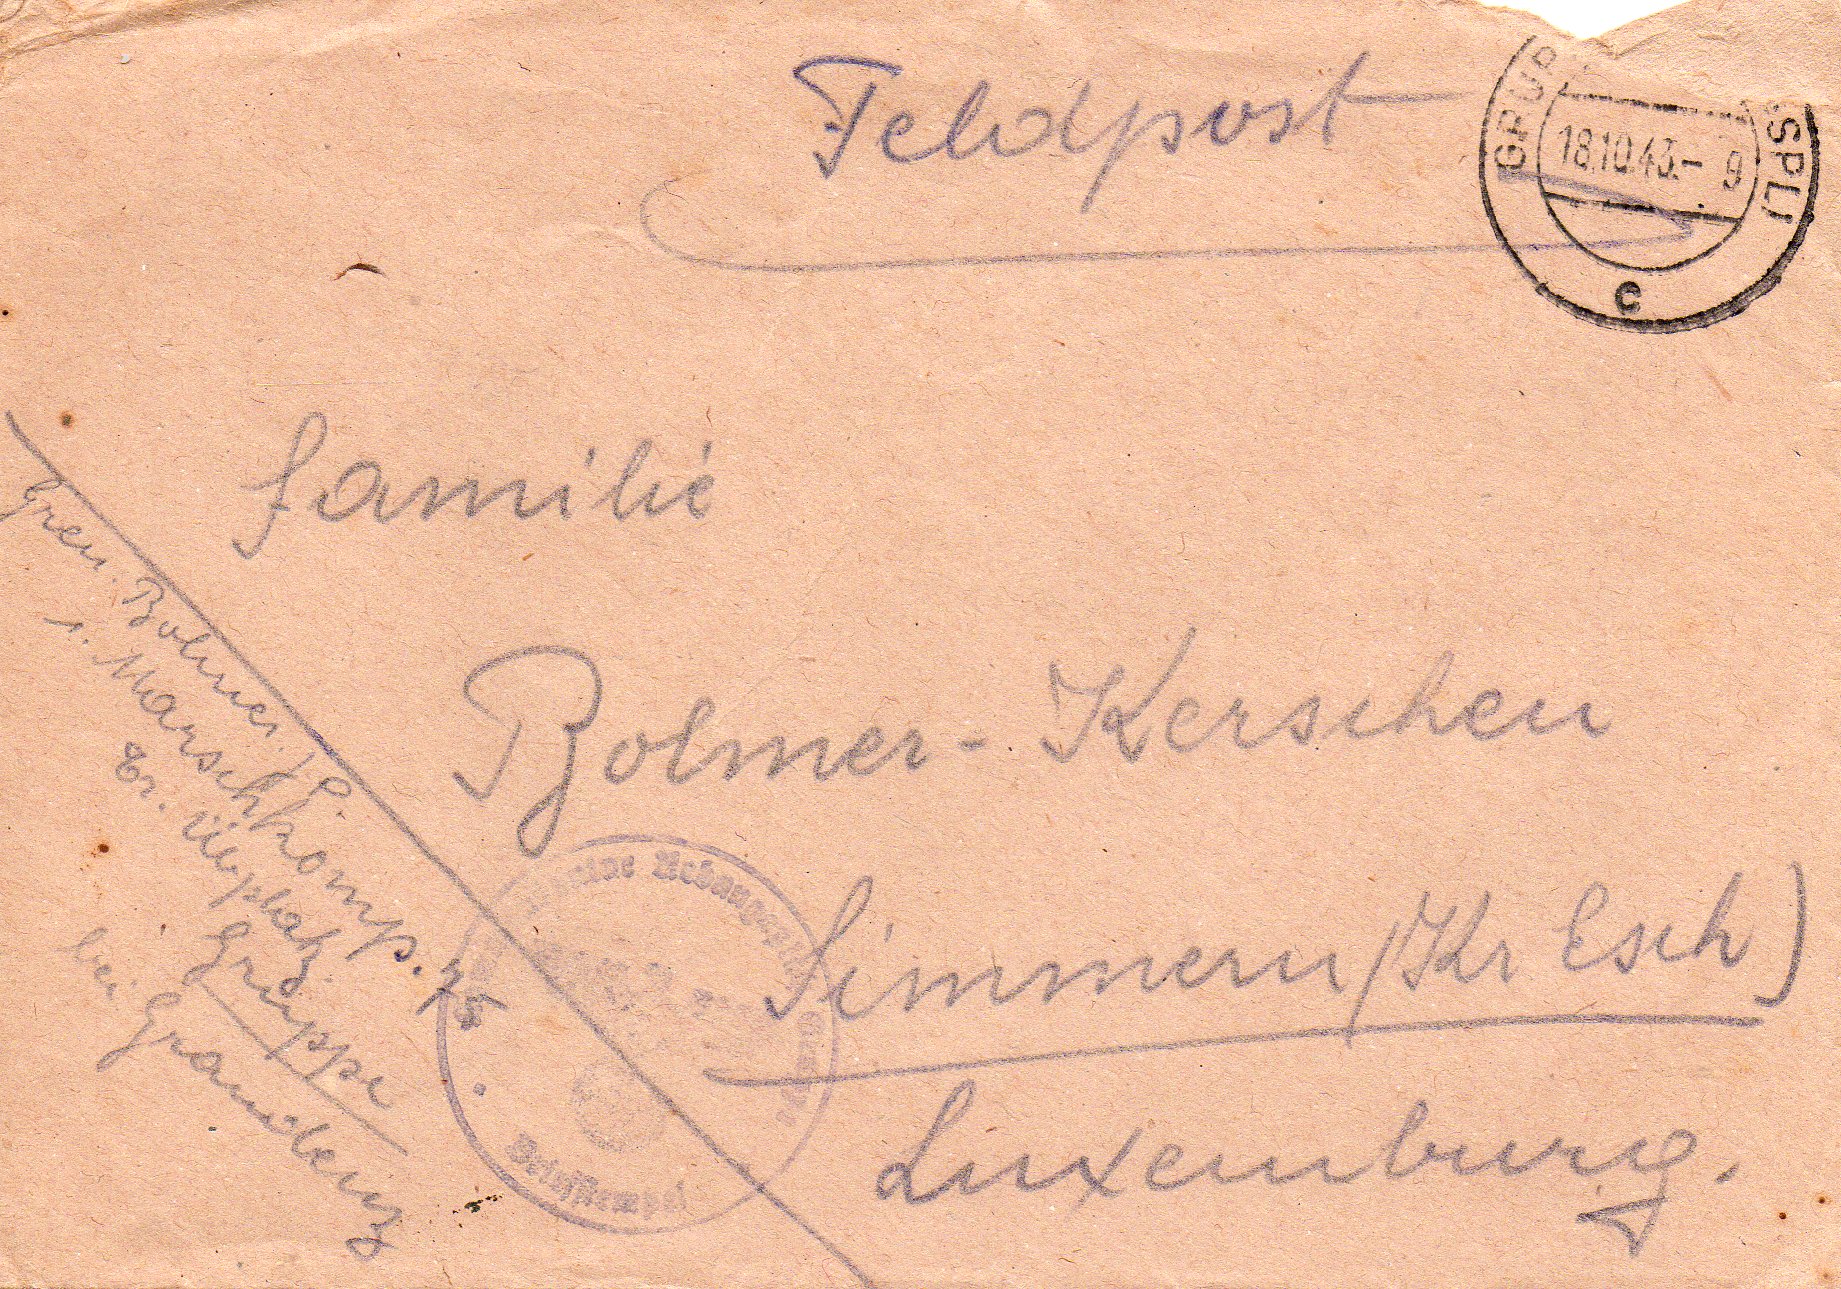 Feldpost
GRUP SPLI
18.10.43.- 9
c
Familie
Bolmer-Kerschen
Simmern (Kr Esch)
Luxemburg.
Gren. Bolmer. P.
1. Marschkomp. 15
Tr. Übplatz
Gruppe
bei Graudenz
Briefstempel